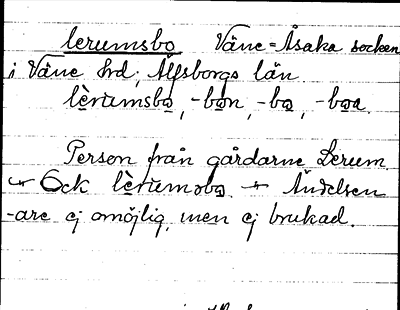 lerumsbo Väne-Åsaka socken
i Väne hrd, Älfsborgs län
lèrumsbo, -bon, -bo, -boa.
Person från gårdarne Lerum.
Ock lèrumsbo. Ändelsen
-are ej omöjlig, men ej brukad.